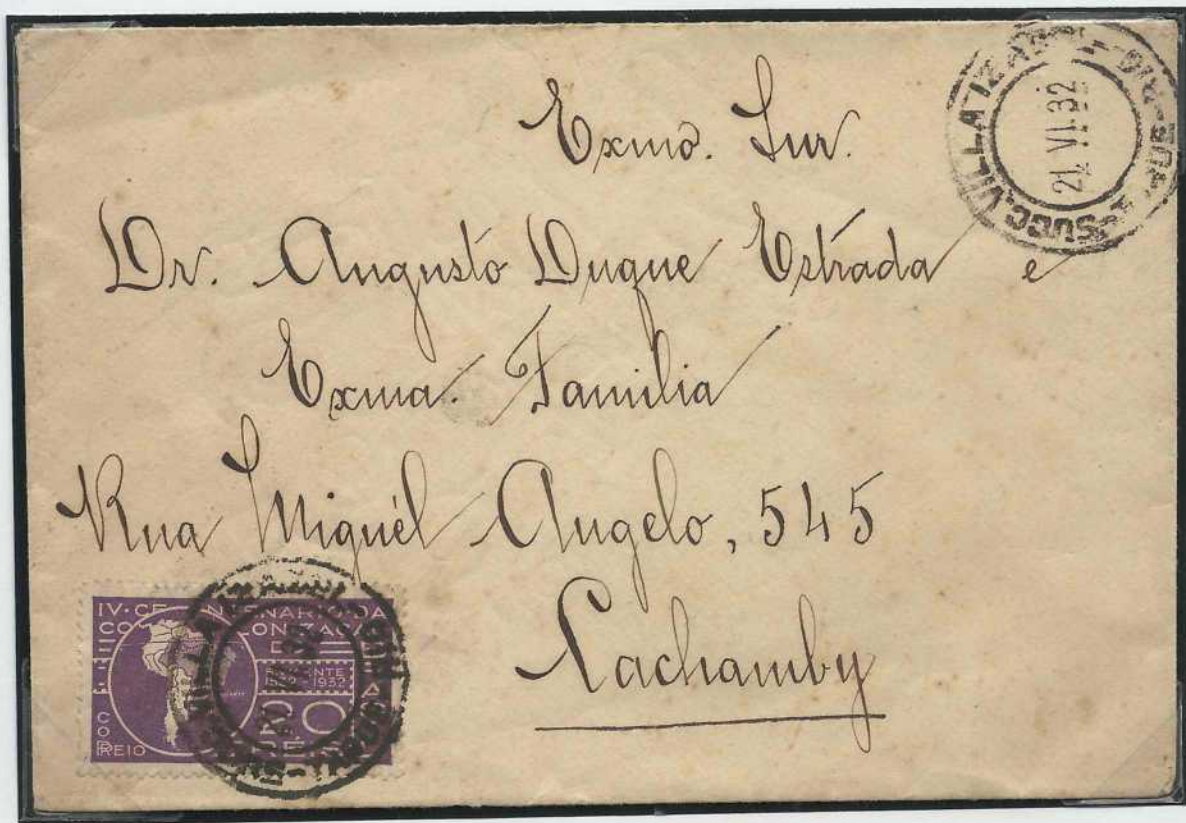 Exmo. Snr.
Dr. Augusto Duque Estrada e
Exma. Familia
Rua Miguél Angelo, 545
Cachamby
SUCC. VILLA IZABEL
21 VI 32
IV. CENTENARIO DA
COLONIZAÇÃO
1932
20
REIS
CORREIO